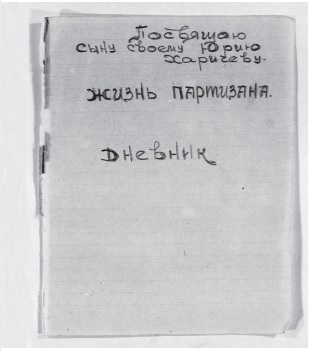 Посвящаю
сыну своему Юрию
Харичеву.
ЖИЗНЬ ПАРТИЗАНА.
Дневник